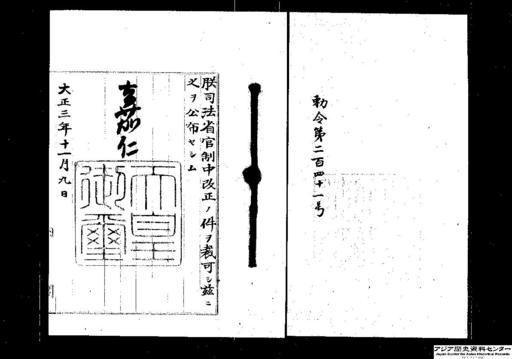 勅令第二百四十一号
朕司法省官制中改正ノ件ヲ裁可シ茲ニ
之ヲ公布セシム
嘉仁
天皇御璽
大正三年十一月九日
アジア歴史資料センター
Japan Center for Asian Historical Records